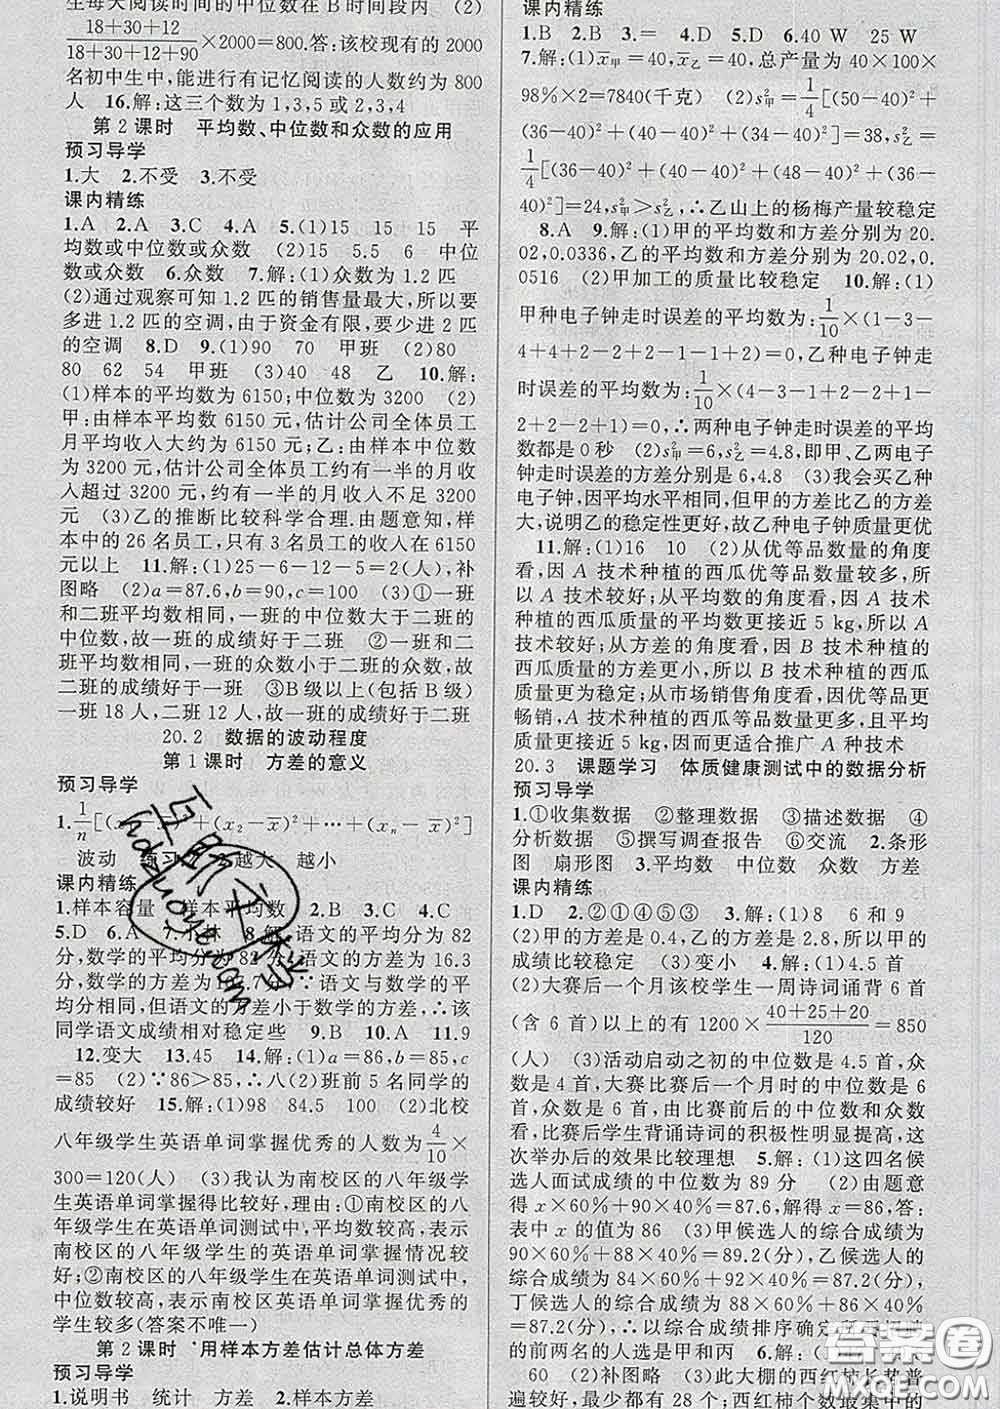 生每天阅读时间的中位数在B时间段内 (2)
18+30+12/18+30+12+90×2000=800.答:该校现有的2000
名初中生中,能进行有记忆阅读的人数约为800
人 16.解:这三个数为1,3,5或2,3,4
第2课时 平均数、中位数和众数的应用
预习导学
1.大 2.不受 3.不受
课内精练
1.A 2.A 3.C 4.A 5.(1)15 15 15 平
均数或中位数或众数 (2)15 5.5 6 中位
数或众数 6.众数 7.解:(1)众数为1.2匹
(2)通过观察可知1.2匹的销售量最大,所以要
多进1.2匹的空调,由于资金有限,要少进2匹
的空调 8.D 9.(1)90 70 甲班 (2)80
80 62 54 甲班 (3)40 48 乙 10.解:
(1)样本的平均数为6150;中位数为3200 (2)
甲:由样本平均数6150元,估计公司全体员工
月平均收入大约为6150元;乙:由样本中位数
为3200元,估计公司全体员工约有一半的月收
入超过3200元,约有一半的月收入不足3200
元 (3)乙的推断比较科学合理.由题意知,样
本中的26名员工,只有3名员工的收入在6150
元以上 11.解:(1)25-6-12-5=2(人),补
图略 (2)a=87.6,b=90,c=100 (3)①一班
和二班平均数相同,一班的中位数大于二班的
中位数,故一班的成绩好于二班 ②一班和二
班平均数相同,一班的众数小于二班的众数,故
二班的成绩好于一班 ③B级以上(包括B级)
一班18人,二班12人,故一班的成绩好于二班
20.2 数据的波动程度
第1课时 方差的意义
预习导学
+(x₂-x̄)²+…+(xₙ-x̄)²]
波动 越大 越小
课内精练
1.样本容量 样本平均数 2.B 3.C 4.C
5.D 6.A 7.小林 8.解:语文的平均分为82
分,数学的平均分为82分,语文的方差为16.3
∵语文与数学的平
均分相同,但语文的方差小于数学的方差,∴该
同学语文成绩相对稳定些 9.B 10.A 11.9
12.变大 13.45 14.解:(1)a=86,b=85,c
=85 (2)∵86>85,∴八(2)班前5名同学的
成绩较好 15.解:(1)98 84.5 100 (2)北校
八年级学生英语单词掌握优秀的人数为4/10×
300=120(人) (3)我认为南校区的八年级学
生英语单词掌握得比较好,理由:①南校区的八
年级学生在英语单词测试中,平均数较高,表示
南校区的八年级学生的英语单词掌握情况较
好;②南校区的八年级学生在英语单词测试中,
中位数较高,表示南校区英语单词掌握优秀的
学生较多(答案不唯一)
第2课时 用样本方差估计总体方差
预习导学
1.说明书 统计 方差 2.样本方差
课内精练
1.B 2.B 3.= 4.D 5.D 6.40 W 25 W
7.解:(1)x̄甲=40,x̄乙=40,总产量为40×100×
98%×2=7840(千克) (2)s²甲=1/4[(50-40)²+
(36-40)²+(40-40)²+(34-40)²]=38,s²乙=
1/4[(36-40)²+(40-40)²+(48-40)²+(36-
40)²]=24,s²甲>s²乙,∴乙山上的杨梅产量较稳定
8.A 9.解:(1)甲的平均数和方差分别为20.
02,0.0336,乙的平均数和方差分别为20.02,0.
0516 (2)甲加工的质量比较稳定 10.解:(1)
甲种电子钟走时误差的平均数为:1/10×(1-3-
4+4+2-2+2-1-1+2)=0,乙种电子钟走
时误差的平均数为:1/10×(4-3-1+2-2+1-
2+2-2+1)=0,∴两种电子钟走时误差的平均
数都是0秒 (2)s²甲=6,s²乙=4.8,即甲、乙两电子钟
走时误差的方差分别是6,4.8 (3)我会买乙种
电子钟,因平均水平相同,但甲的方差比乙的方差
大,说明乙的稳定性更好,故乙种电子钟质量更优
11.解:(1)16 10 (2)从优等品数量的角度
看,因A技术种植的西瓜优等品数量较多,所
以A技术较好;从平均数的角度看,因A技术
种植的西瓜质量的平均数更接近5 kg,所以A
技术较好;从方差的角度看,因B技术种植的
西瓜质量的方差更小,所以B技术种植的西瓜
质量更为稳定;从市场销售角度看,因优等品更
畅销,A技术种植的西瓜优等品数量更多,且平均
质量更接近5 kg,因而更适合推广A种技术
20.3 课题学习 体质健康测试中的数据分析
预习导学
1.①收集数据 ②整理数据 ③描述数据 ④
分析数据 ⑤撰写调查报告 ⑥交流 2.条形
图 扇形图 3.平均数 中位数 众数 方差
课内精练
1.D 2.②①④⑤③ 3.解:(1)8 6和9
(2)甲的方差是0.4,乙的方差是2.8,所以甲的
成绩比较稳定 (3)变小 4.解:(1)4.5首
(2)大赛后一个月该校学生一周诗词诵背6首
(含6首)以上的有1200×40+25+20/120=850
(人) (3)活动启动之初的中位数是4.5首,众
数是4首,大赛比赛后一个月时的中位数是6
首,众数是6首,由比赛前后的中位数和众数
看,比赛后学生背诵诗词的积极性明显提高,这
次举办后的效果比较理想 5.解:(1)这四名候
选人面试成绩的中位数为89分 (2)由题意
得x×60%+90×40%=87.6,解得x=86,答:
表中x的值为86 (3)甲候选人的综合成绩为
90×60%+88×40%=89.2(分),乙候选人的综
合成绩为84×60%+92×40%=87.2(分),
丁候选人的综合成绩为88×60%+86×40%
=87.2(分),∴以综合成绩排序确定
选人是甲和丙 6.解:(1)
60 (2)补图略 (3)此大棚的西红柿长势普
遍较好,最少都有28个;西红柿个数最集中的
答案圈
MXQE.COM